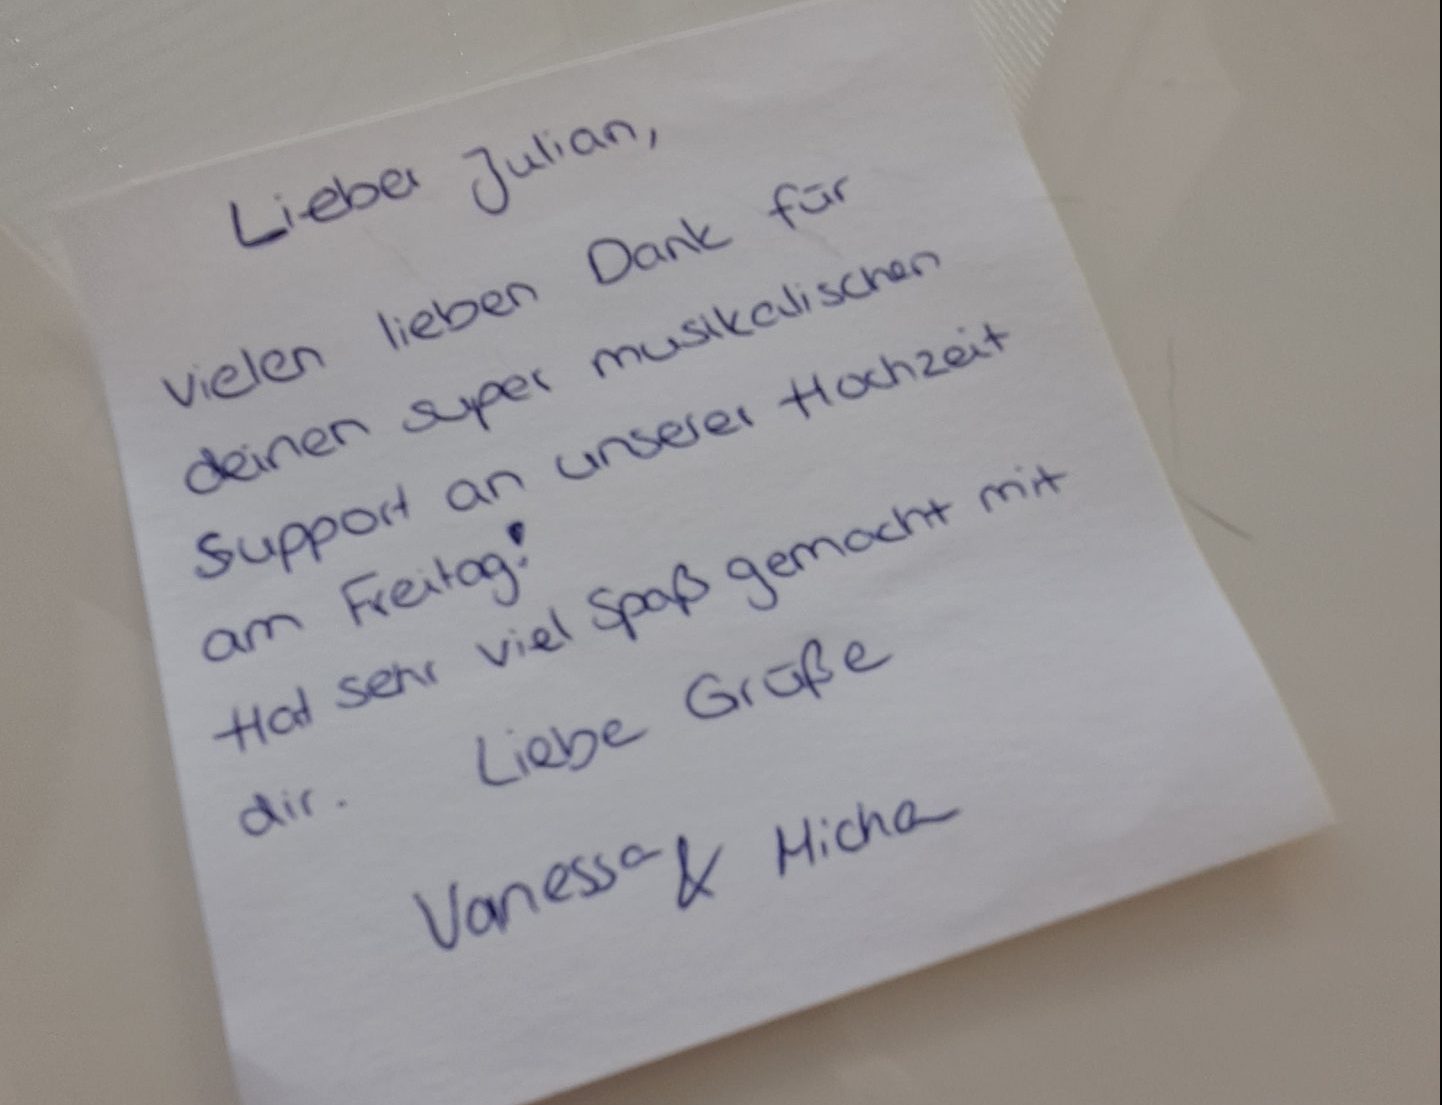 Lieber Julian,
vielen lieben Dank für
deinen super musikalischen
Support an unserer Hochzeit
am Freitag!
Hat sehr viel Spaß gemacht mit
dir. Liebe Grüße
Vanessa & Micha